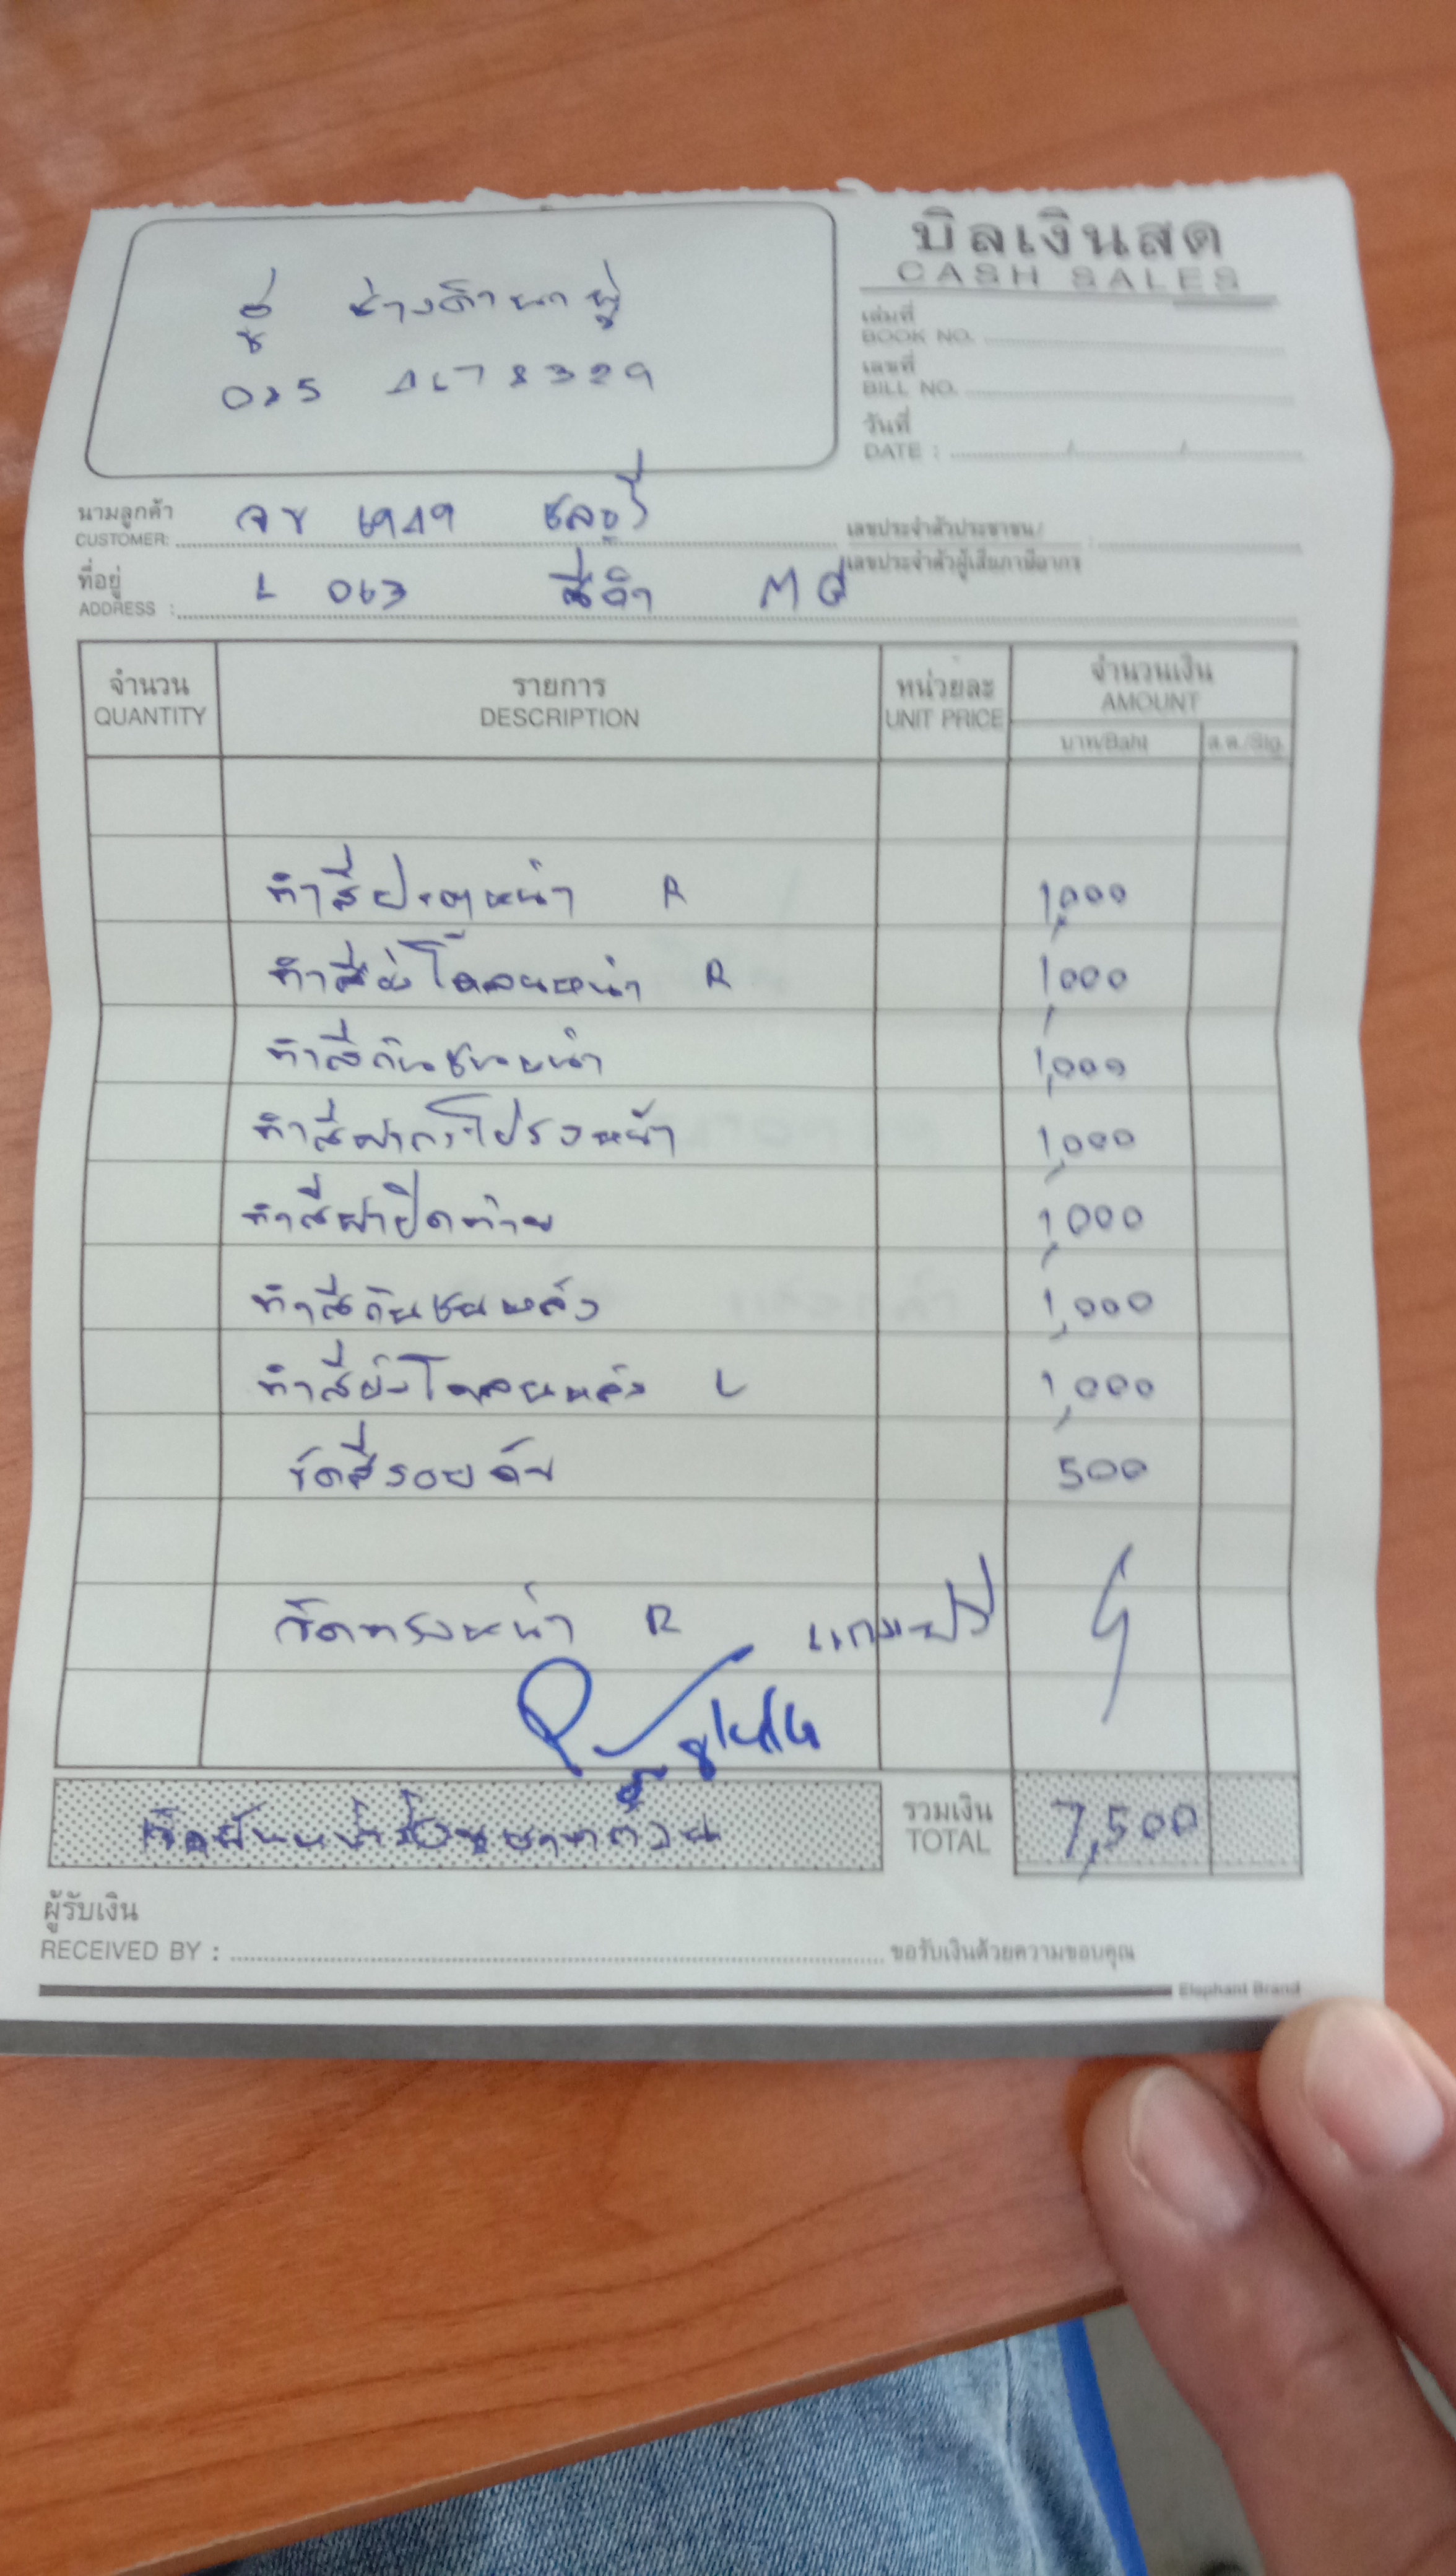 บิลเงินสด
CASH SALES
อู่ ช่างติ นาผู่
085 4678329
เล่มที่
BOOK NO.
เลขที่
BILL NO.
วันที่
DATE : / /
นามลูกค้า
CUSTOMER: จข 6949 ชลบุรี
เลขประจำตัวประชาชน/
เลขประจำตัวผู้เสียภาษีอากร :
ที่อยู่
ADDRESS : L 063 สีดำ
จำนวน
QUANTITY
รายการ
DESCRIPTION
หน่วยละ
UNIT PRICE
จำนวนเงิน
AMOUNT
บาท/Baht ส.ต./Stg.
ทำสีประตูหน้า R 1,000
ทำสีบังโคลนหน้า R 1,000
ทำสีกันชนหน้า 1,000
ทำสีฝากระโปรงหน้า 1,000
ทำสีฝาปิดท้าย 1,000
ทำสีกันชนหลัง 1,000
ทำสีบังโคลนหลัง L 1,000
ขัดสีรอบคัน 500
R
รวมเงิน
TOTAL 7,500
ผู้รับเงิน
RECEIVED BY :
ขอรับเงินด้วยความขอบคุณ
Elephant Brand